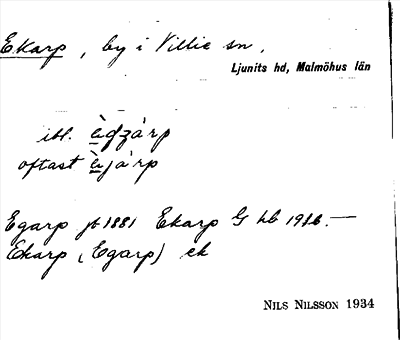 Ekarp, by i Villie sn,
Ljunits hd, Malmöhus län
ibl. 
oftast èjàrp
Egarp jb 1881 Ekarp G kb 1926.—
Ekarp (Egarp) ek
NILS NILSSON 1934